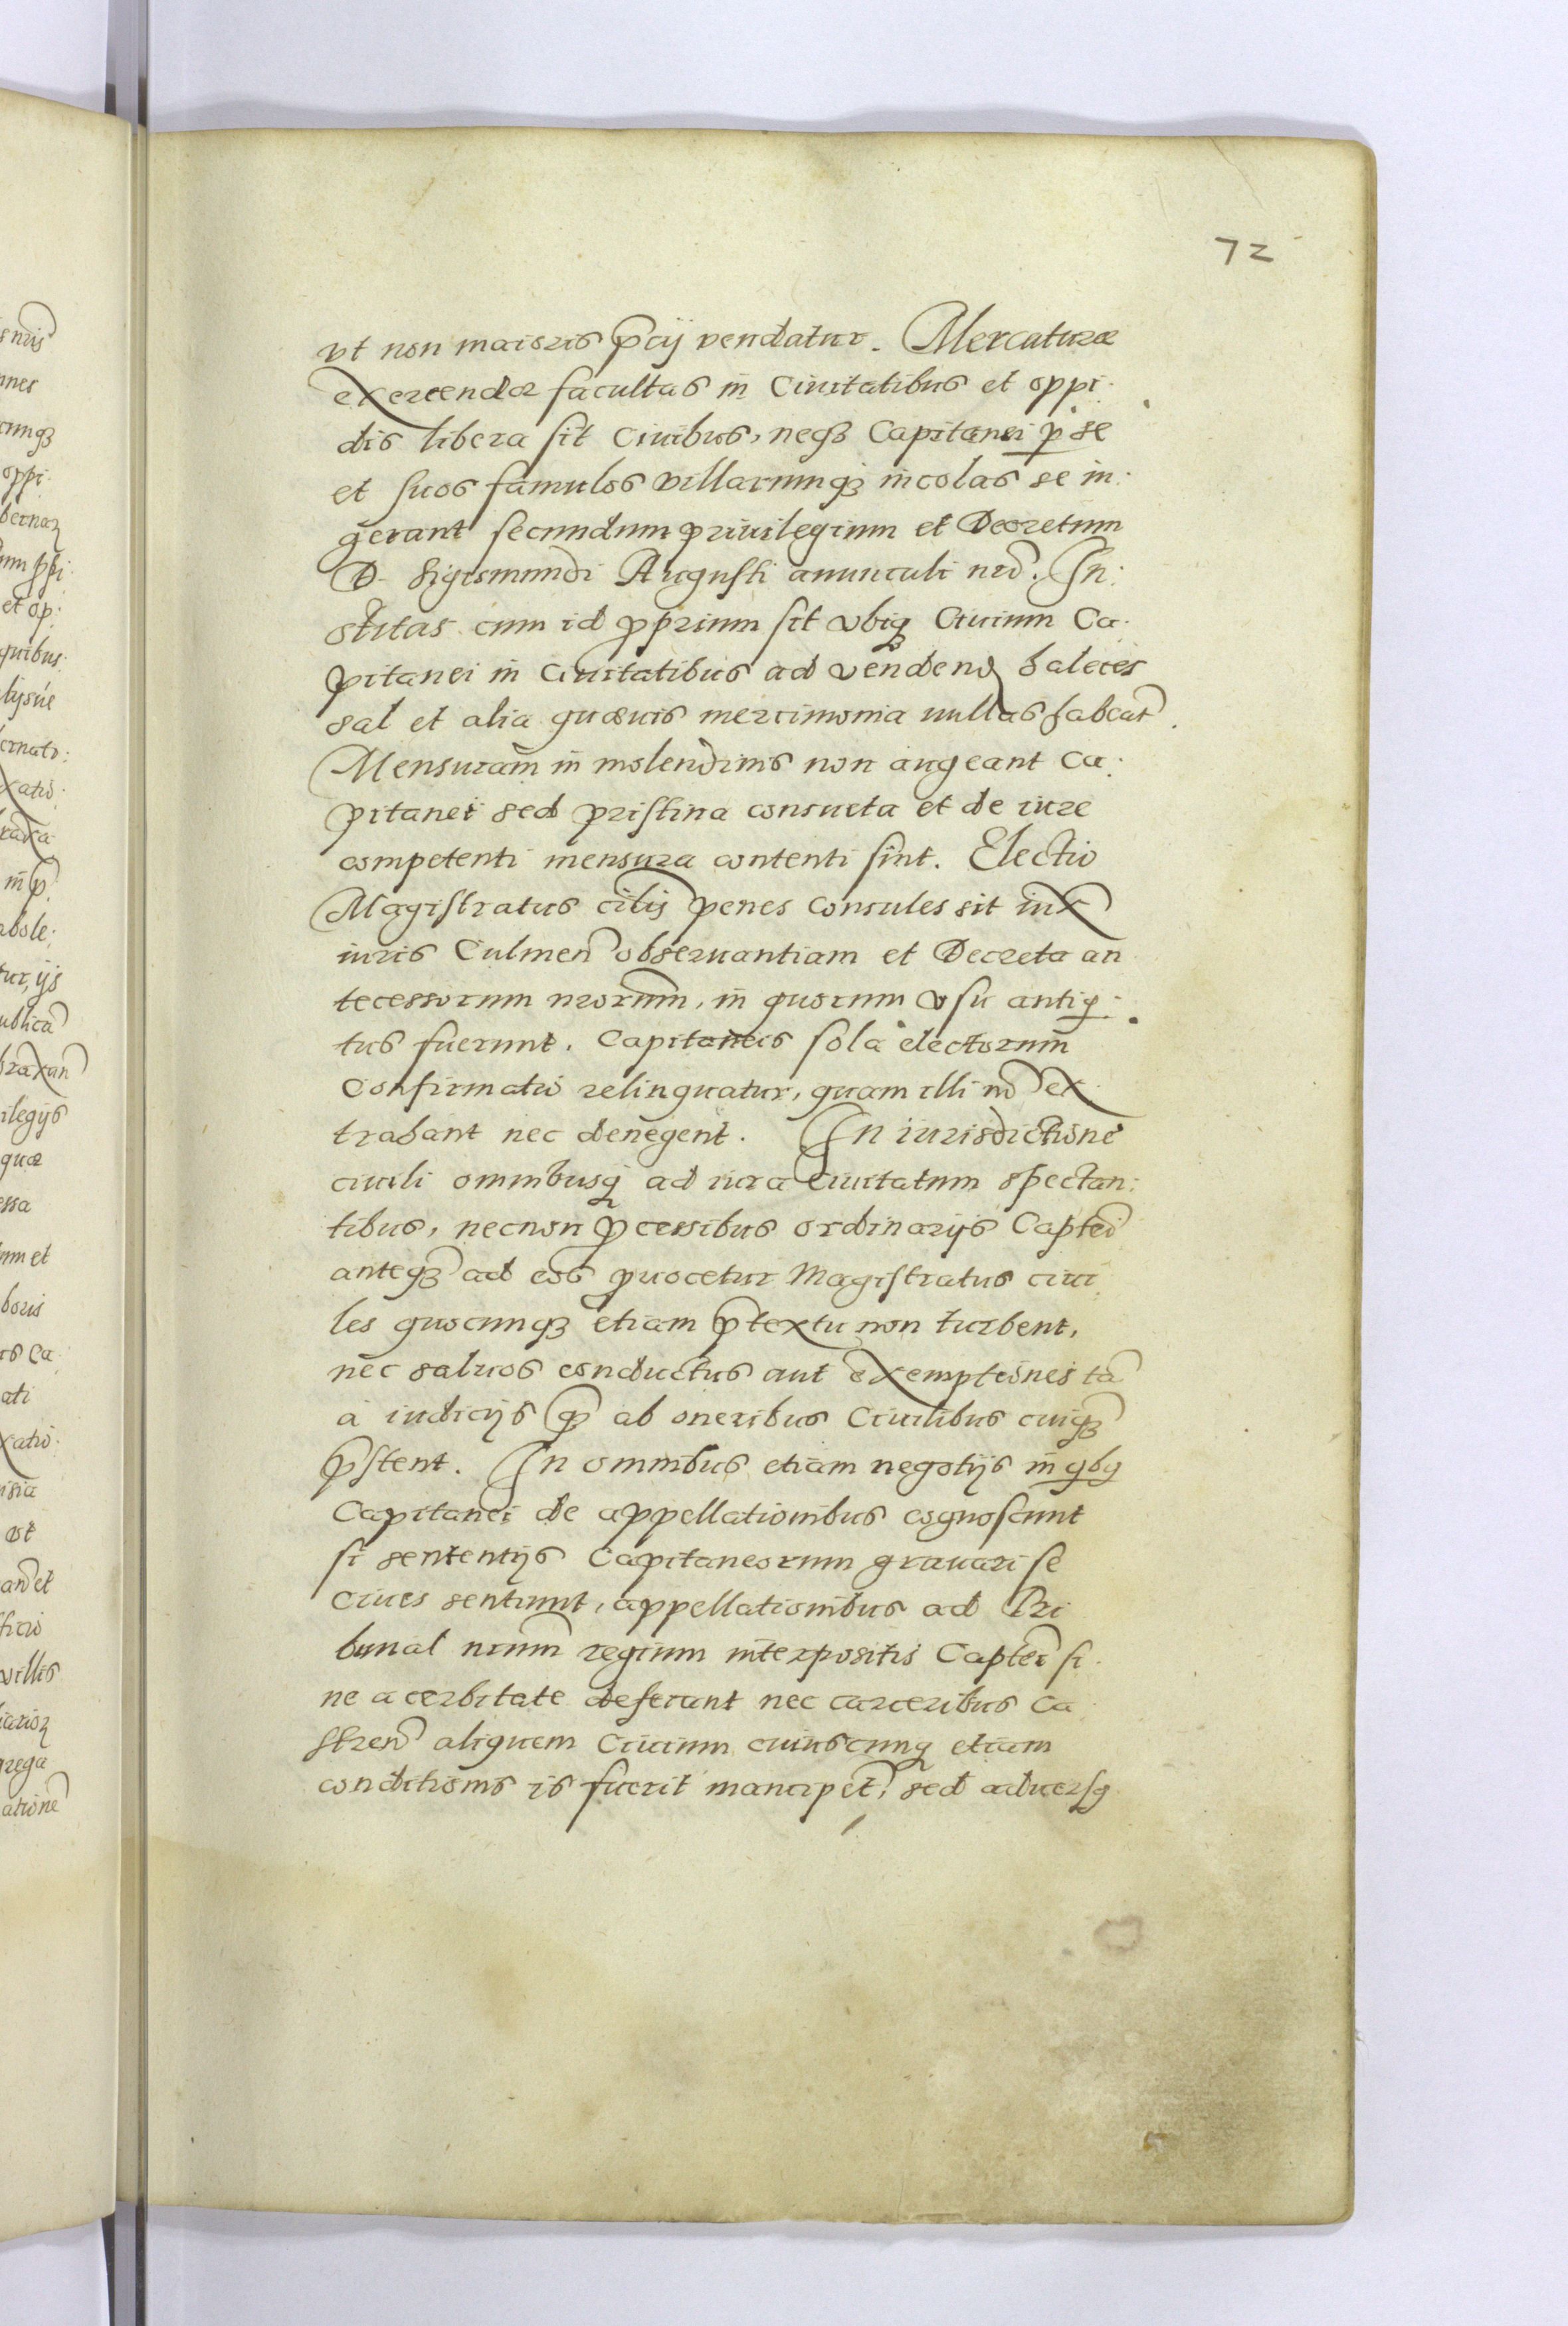 72
vt non maioris p̃cij vendatur. Mercaturæ
exercendæ facultas in Ciuitatibus et oppi:
dis libera sit Ciuibus, neqꝫ Capitanei ꝑ se
et suos famulos villarumqꝫ incolas se in:
gerant secundum priuilegium et Decretum
D. Sigismundi Augusti auunculi nri̅. In:
stitas cum id ꝓprium sit vbiqꝫ Ciuium Ca:
pitanei in Ciuitatibus ad vendend haleces
sal et alia quæuis mercimonia nullas habeat̅.
Mensuram in molendinis non augeant Ca:
pitanei sed pristina consueta et de iure
competenti mensura contenti sint. Electio
Magistratus ciu̅lis penes Consules sit iux̅
iuris Culmen̅ obseruantiam et Decreta an
tecessorum nr̅orum, in quorum vsu antiq:
tus fuerunt. Capitaneis sola electorum
Confirmatio relinquatur, quam illi no̅ ex
trahant nec denegent. In iurisdictione
ciuili omnibusqꝫ ad iura Ciuitatum spectan:
tibus, necnon ꝓcessibus ordinarijs Captei̅
anteqꝫ̅ ad eos ꝓuocetur Magistratus ciui
les quocunqꝫ etiam p̃textu non turbent,
nec saluos conductus aut exemptiones ta̅
a iudicijs q̅ ab oneribus Ciuilibus cuiqꝫ̅
p̃stent. In omnibus etiam negotijs in qꝫbꝫ
Capitanei de appellationibus cognoscunt
si sententijs Capitaneorum grauari se
Ciues sentiunt, appellationibus ad Tri
bunal nr̅um regium interpositis Captei̅ si:
ne acerbitate deferant nec carceribus Ca
stren̅ aliquem Ciuium cuiuscunqꝫ etiam
conditionis is fuerit mancipet̅, sed aduersꝫ